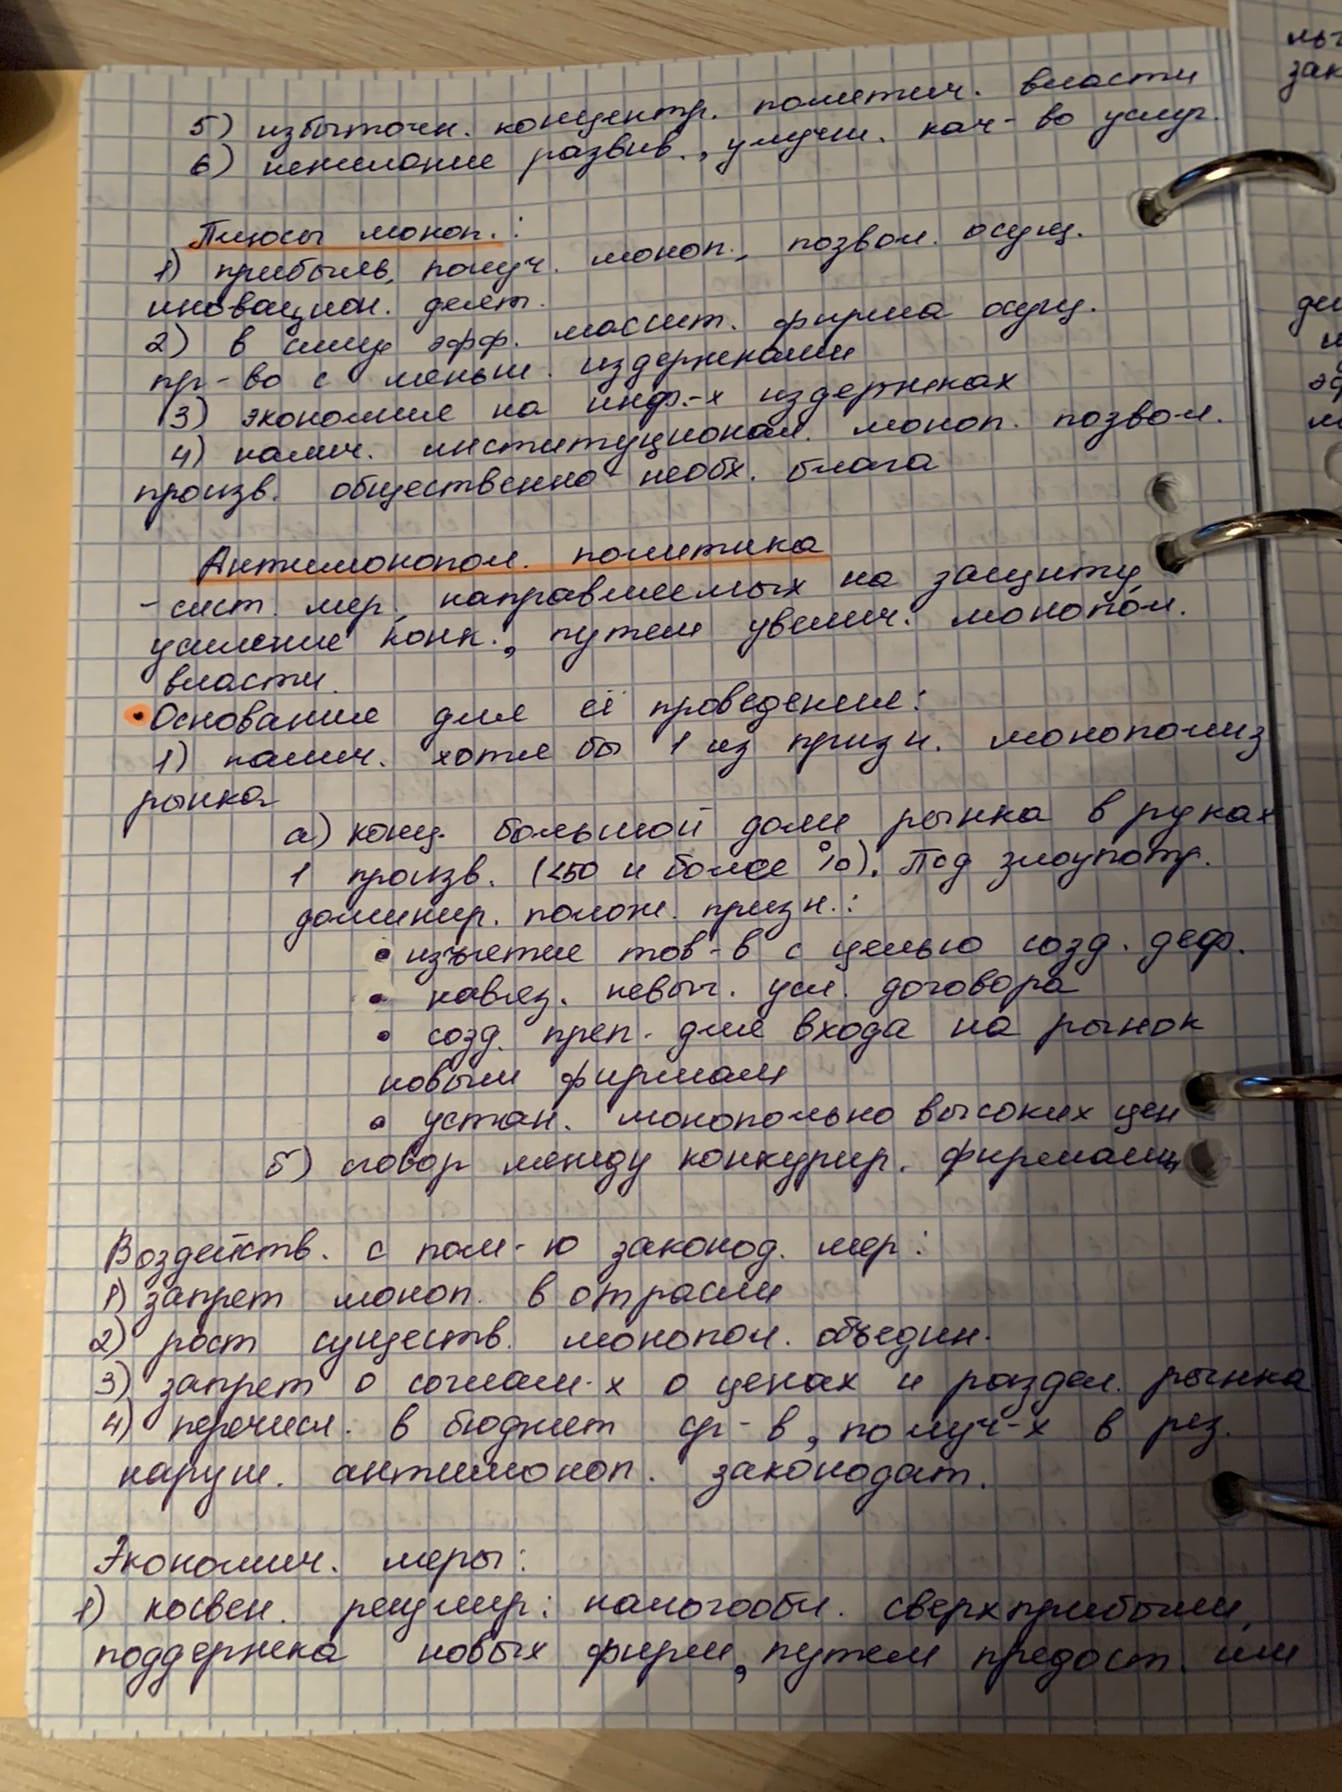 5) избыточн. концентр. политич. власти
6) нежелание развив., улучш. кач-во услуг.
Плюсы моноп.:
1) прибыль, получ. моноп., позвол. осущ.
иновацион. деят.
2) в силу эфф. масшт. фирма осущ.
пр-во с меньш. издержками
3) экономия на инф.-х издержках
4) налич. институционал. моноп. позвол.
произв. общественно необх. блага
Антимонопол. политика
- сист. мер, направляемых на защиту
усиление конк., путем увелич. монопол.
власти.
• Основание для её проведения:
1) налич. хотя бы 1 из призн. монополиз
рынка
а) конц. большой доли рынка в руках
1 произв. (<50 и более %). Под злоупотр.
доминир. полож. призн.:
• изъятие тов-в с целью созд. деф.
• навяз. невыг. усл. договора
• созд. преп. для входа на рынок
новым фирмам
• устан. монопольно высоких цен
б) сговор между конкурир. фирмами
Воздейств. с пом-ю законод. мер:
1) запрет моноп. в отрасли
2) рост существ. монопол. объедин.
3) запрет о соглаш-х о ценах и раздел. рынка
4) перечисл. в бюджет ср-в, получ-х в рез.
наруш. антимоноп. законодат.
Экономич. меры:
1) косвен. регулир: налогообл. сверхприбыли,
поддержка новых фирм, путем предост. им